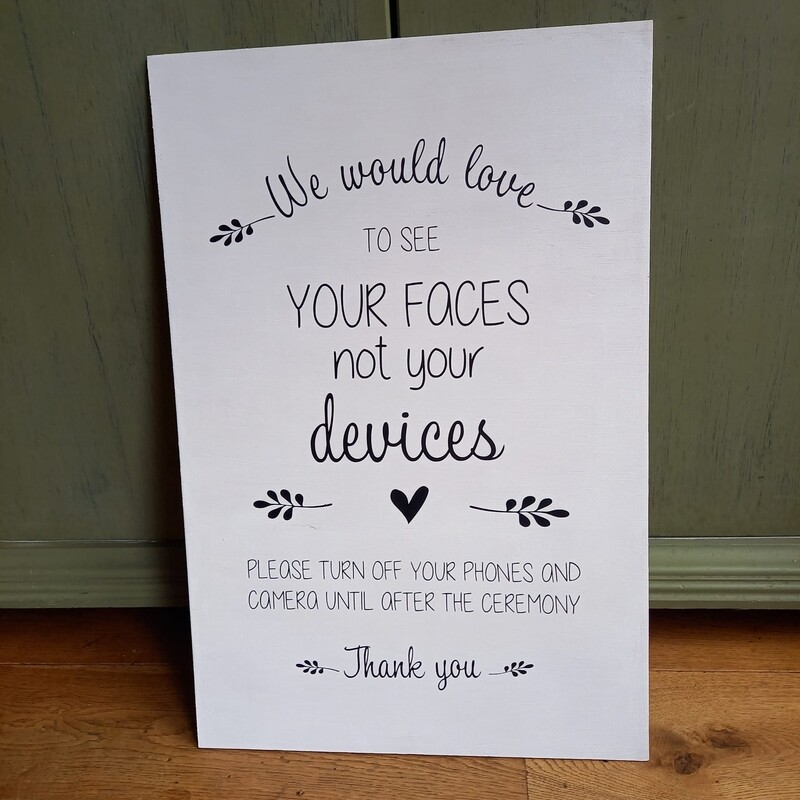 We would love
TO SEE
YOUR FACES
not your
devices
PLEASE TURN OFF YOUR PHONES AND
CAMERA UNTIL AFTER THE CEREMONY
Thank you